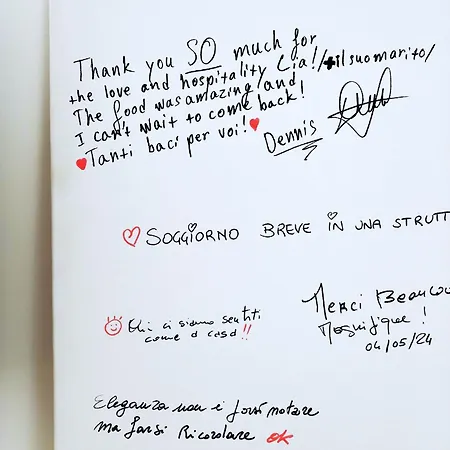 Thank you SO much for
the love and hospitality Lia!/+il suo marito/
The food was amazing and
I can't wait to come back!
♥Tanti baci per voi!♥
Dennis
♡ SOGGIORNO BREVE IN UNA STRUTT
Merci Beaucou
Magnifique !
04/05/24
ci siamo sentiti
come a casa!!
Eleganza non è farsi notare
ma farsi Ricordare ok